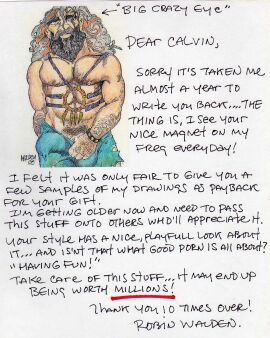 "BIG CRAZY EYE"
DEAR CALVIN,
SORRY IT'S TAKEN ME
ALMOST A YEAR TO
WRITE YOU BACK....THE
THING IS, I SEE YOUR
NICE MAGNET ON MY
FREG EVERYDAY!
I FELT IT WAS ONLY FAIR TO GIVE YOU A
FEW SAMPLES OF MY DRAWINGS AS PAYBACK
FOR YOUR GIFT.
I'M GETTING OLDER NOW AND NEED TO PASS
THIS STUFF ONTO OTHERS WHO'LL APPRECIATE IT.
YOUR STYLE HAS A NICE, PLAYFULL LOOK ABOUT
IT....AND ISN'T THAT WHAT GOOD PORN IS ALL ABOUT?
"HAVING FUN!"
TAKE CARE OF THIS STUFF... IT MAY END UP
BEING WORTH MILLIONS!
THANK YOU 10 TIMES OVER!
ROBIN WALDEN.